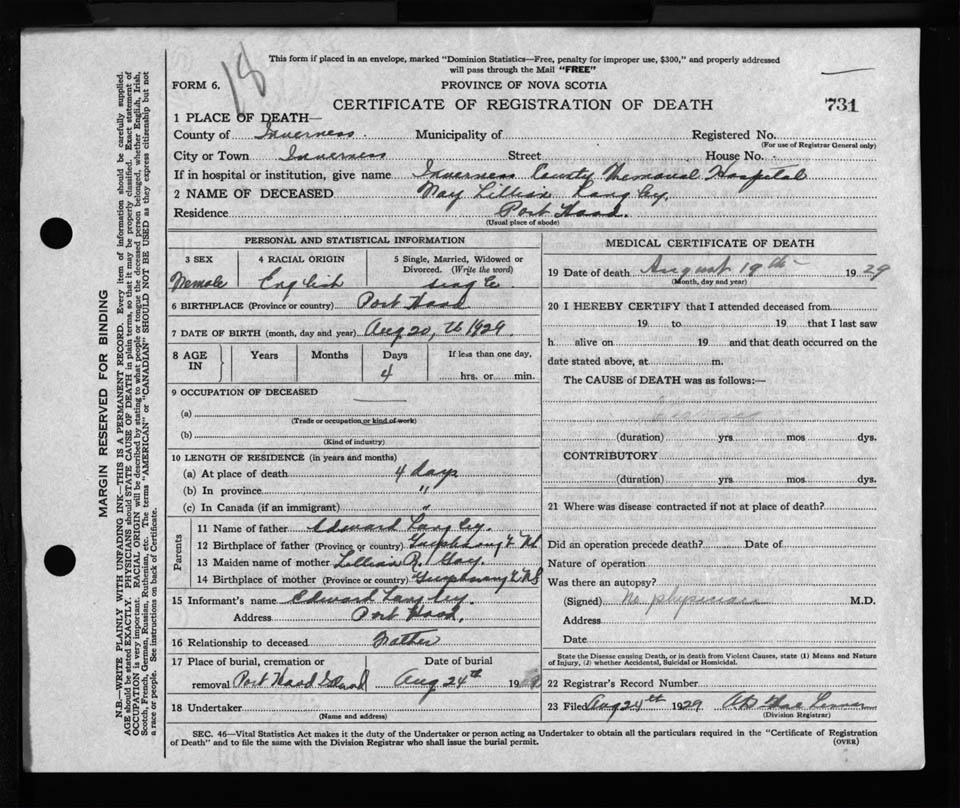 18
This form if placed in an envelope, marked "Dominion Statistics—Free, penalty for improper use, $300," and properly addressed
will pass through the Mail "FREE"
FORM 6.
PROVINCE OF NOVA SCOTIA
CERTIFICATE OF REGISTRATION OF DEATH
731
1 PLACE OF DEATH—
County of Inverness Municipality of Registered No.
(For use of Registrar General only)
City or Town Inverness Street House No.
If in hospital or institution, give name Inverness County Memorial Hospital
2 NAME OF DECEASED May Lillian Langley.
Residence Port Hood.
(Usual place of abode)
PERSONAL AND STATISTICAL INFORMATION
3 SEX 4 RACIAL ORIGIN 5 Single, Married, Widowed or
Divorced. (Write the word)
Female English single
6 BIRTHPLACE (Province or country) Port Hood
7 DATE OF BIRTH (month, day and year) Aug 20, th 1929.
8 AGE IN Years Months Days If less than one day,
4 hrs. or min.
9 OCCUPATION OF DECEASED
(a)
(Trade or occupation or kind of work)
(b)
(Kind of industry)
10 LENGTH OF RESIDENCE (in years and months)
(a) At place of death 4 days
(b) In province "
(c) In Canada (if an immigrant) "
Parents
11 Name of father Edward Langley.
12 Birthplace of father (Province or country)
13 Maiden name of mother Lillian R.
14 Birthplace of mother (Province or country)
15 Informant's name Edward Langley.
Address Port Hood.
16 Relationship to deceased Father
17 Place of burial, cremation or Date of burial
removal Port Hood Island Aug 24th 19
18 Undertaker
(Name and address)
MEDICAL CERTIFICATE OF DEATH
19 Date of death August 19th 1929
(Month, day and year)
20 I HEREBY CERTIFY that I attended deceased from
19 to 19 that I last saw
h alive on 19 and that death occurred on the
date stated above, at m.
The CAUSE of DEATH was as follows:—
(duration) yrs mos dys.
CONTRIBUTORY
(duration) yrs mos dys.
21 Where was disease contracted if not at place of death?
Did an operation precede death? Date of
Nature of operation
Was there an autopsy?
(Signed) No physician M.D.
Address
Date
State the Disease causing Death, or in death from Violent Causes, state (1) Means and Nature
of Injury, (2) whether Accidental, Suicidal or Homicidal.
22 Registrar's Record Number
23 Filed Aug 24th 1929
(Division Registrar)
SEC. 46—Vital Statistics Act makes it the duty of the Undertaker or person acting as Undertaker to obtain all the particulars required in the "Certificate of Registration
of Death" and to file the same with the Division Registrar who shall issue the burial permit.
(OVER)
MARGIN RESERVED FOR BINDING
N.B.—WRITE PLAINLY WITH UNFADING INK—THIS IS A PERMANENT RECORD. Every item of information should be carefully supplied.
AGE should be stated EXACTLY. PHYSICIANS should STATE CAUSE OF DEATH in plain terms, so that it may be properly classified. Exact statement of
OCCUPATION is very important. RACIAL ORIGIN will be described by stating to what people or tongue the deceased person belonged, whether English, Irish,
Scotch, French, German, Russian, Ruthenian, etc. The terms "AMERICAN" or "CANADIAN" SHOULD NOT BE USED as they express citizenship but not
a race or people. See instructions on back of Certificate.